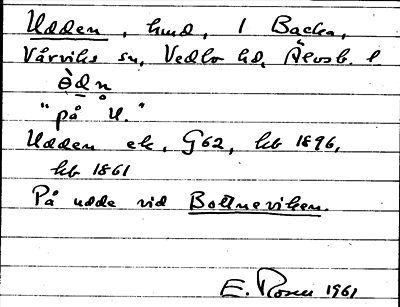 Udden, hmd, 1 Backa,
Vårviks sn, Vedbo hd, Älvsb. l
ò̀dn
"på U."
Udden ek, G62, kb 1896,
kb 1861
På udde vid Bottneviken.
E. Rosen 1961